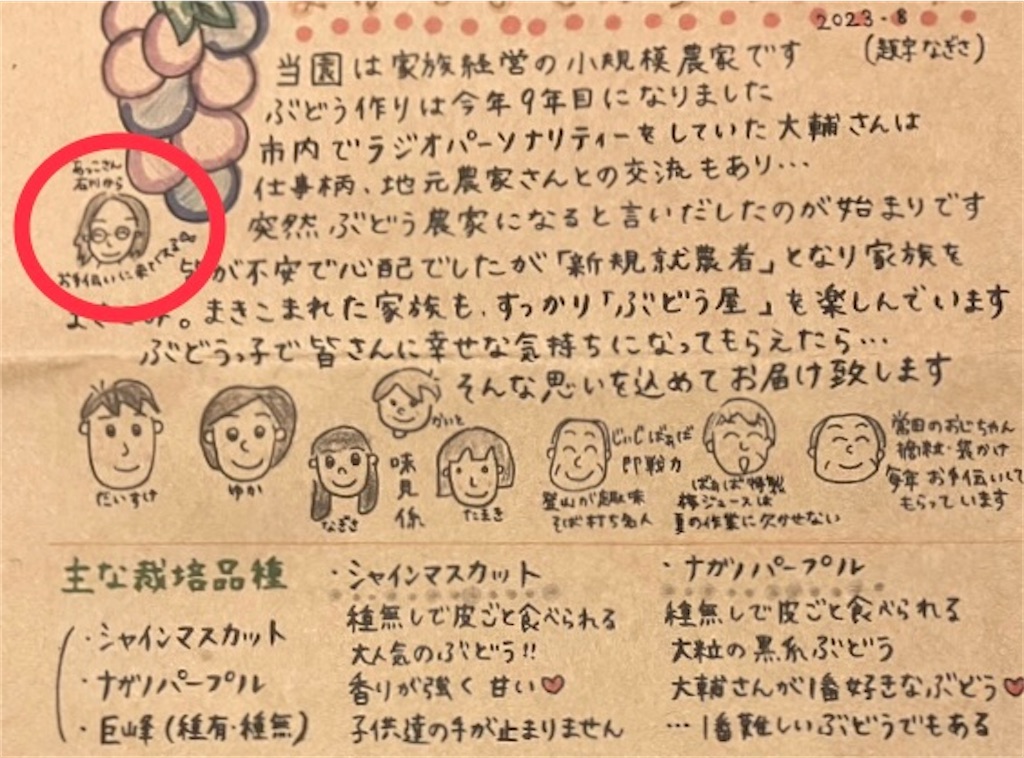 2023.8
(題字なぎさ)
当園は家族経営の小規模農家です
ぶどう作りは今年9年目になりました
市内でラジオパーソナリティーをしていた大輔さんは
仕事柄、地元農家さんとの交流もあり…
突然ぶどう農家になると言いだしたのが始まりです
が不安で心配でしたが「新規就農者」となり家族を
。まきこまれた家族も、すっかり「ぶどう屋」を楽しんでいます
ぶどうっ子で皆さんに幸せな気持ちになってもらえたら…
そんな思いを込めてお届け致します
あっこさん
石川から
お手伝いに来てくれる
だいすけ
ゆか
なぎさ
かいと
味見係
たまき
じぃじばぁば
即戦力
登山が趣味
そば打ち名人
ばぁば特製
梅ジュースは
夏の作業に欠かせない
常田のおじちゃん
摘粒・袋かけ
毎年お手伝いして
もらっています
主な栽培品種
・シャインマスカット
・ナガノパープル
・巨峰(種有・種無)
・シャインマスカット
種無しで皮ごと食べられる
大人気のぶどう!!
香りが強く甘い♡
子供達の手が止まりません
・ナガノパープル
種無しで皮ごと食べられる
大粒の黒系ぶどう
大輔さんが1番好きなぶどう♡
…1番難しいぶどうでもある